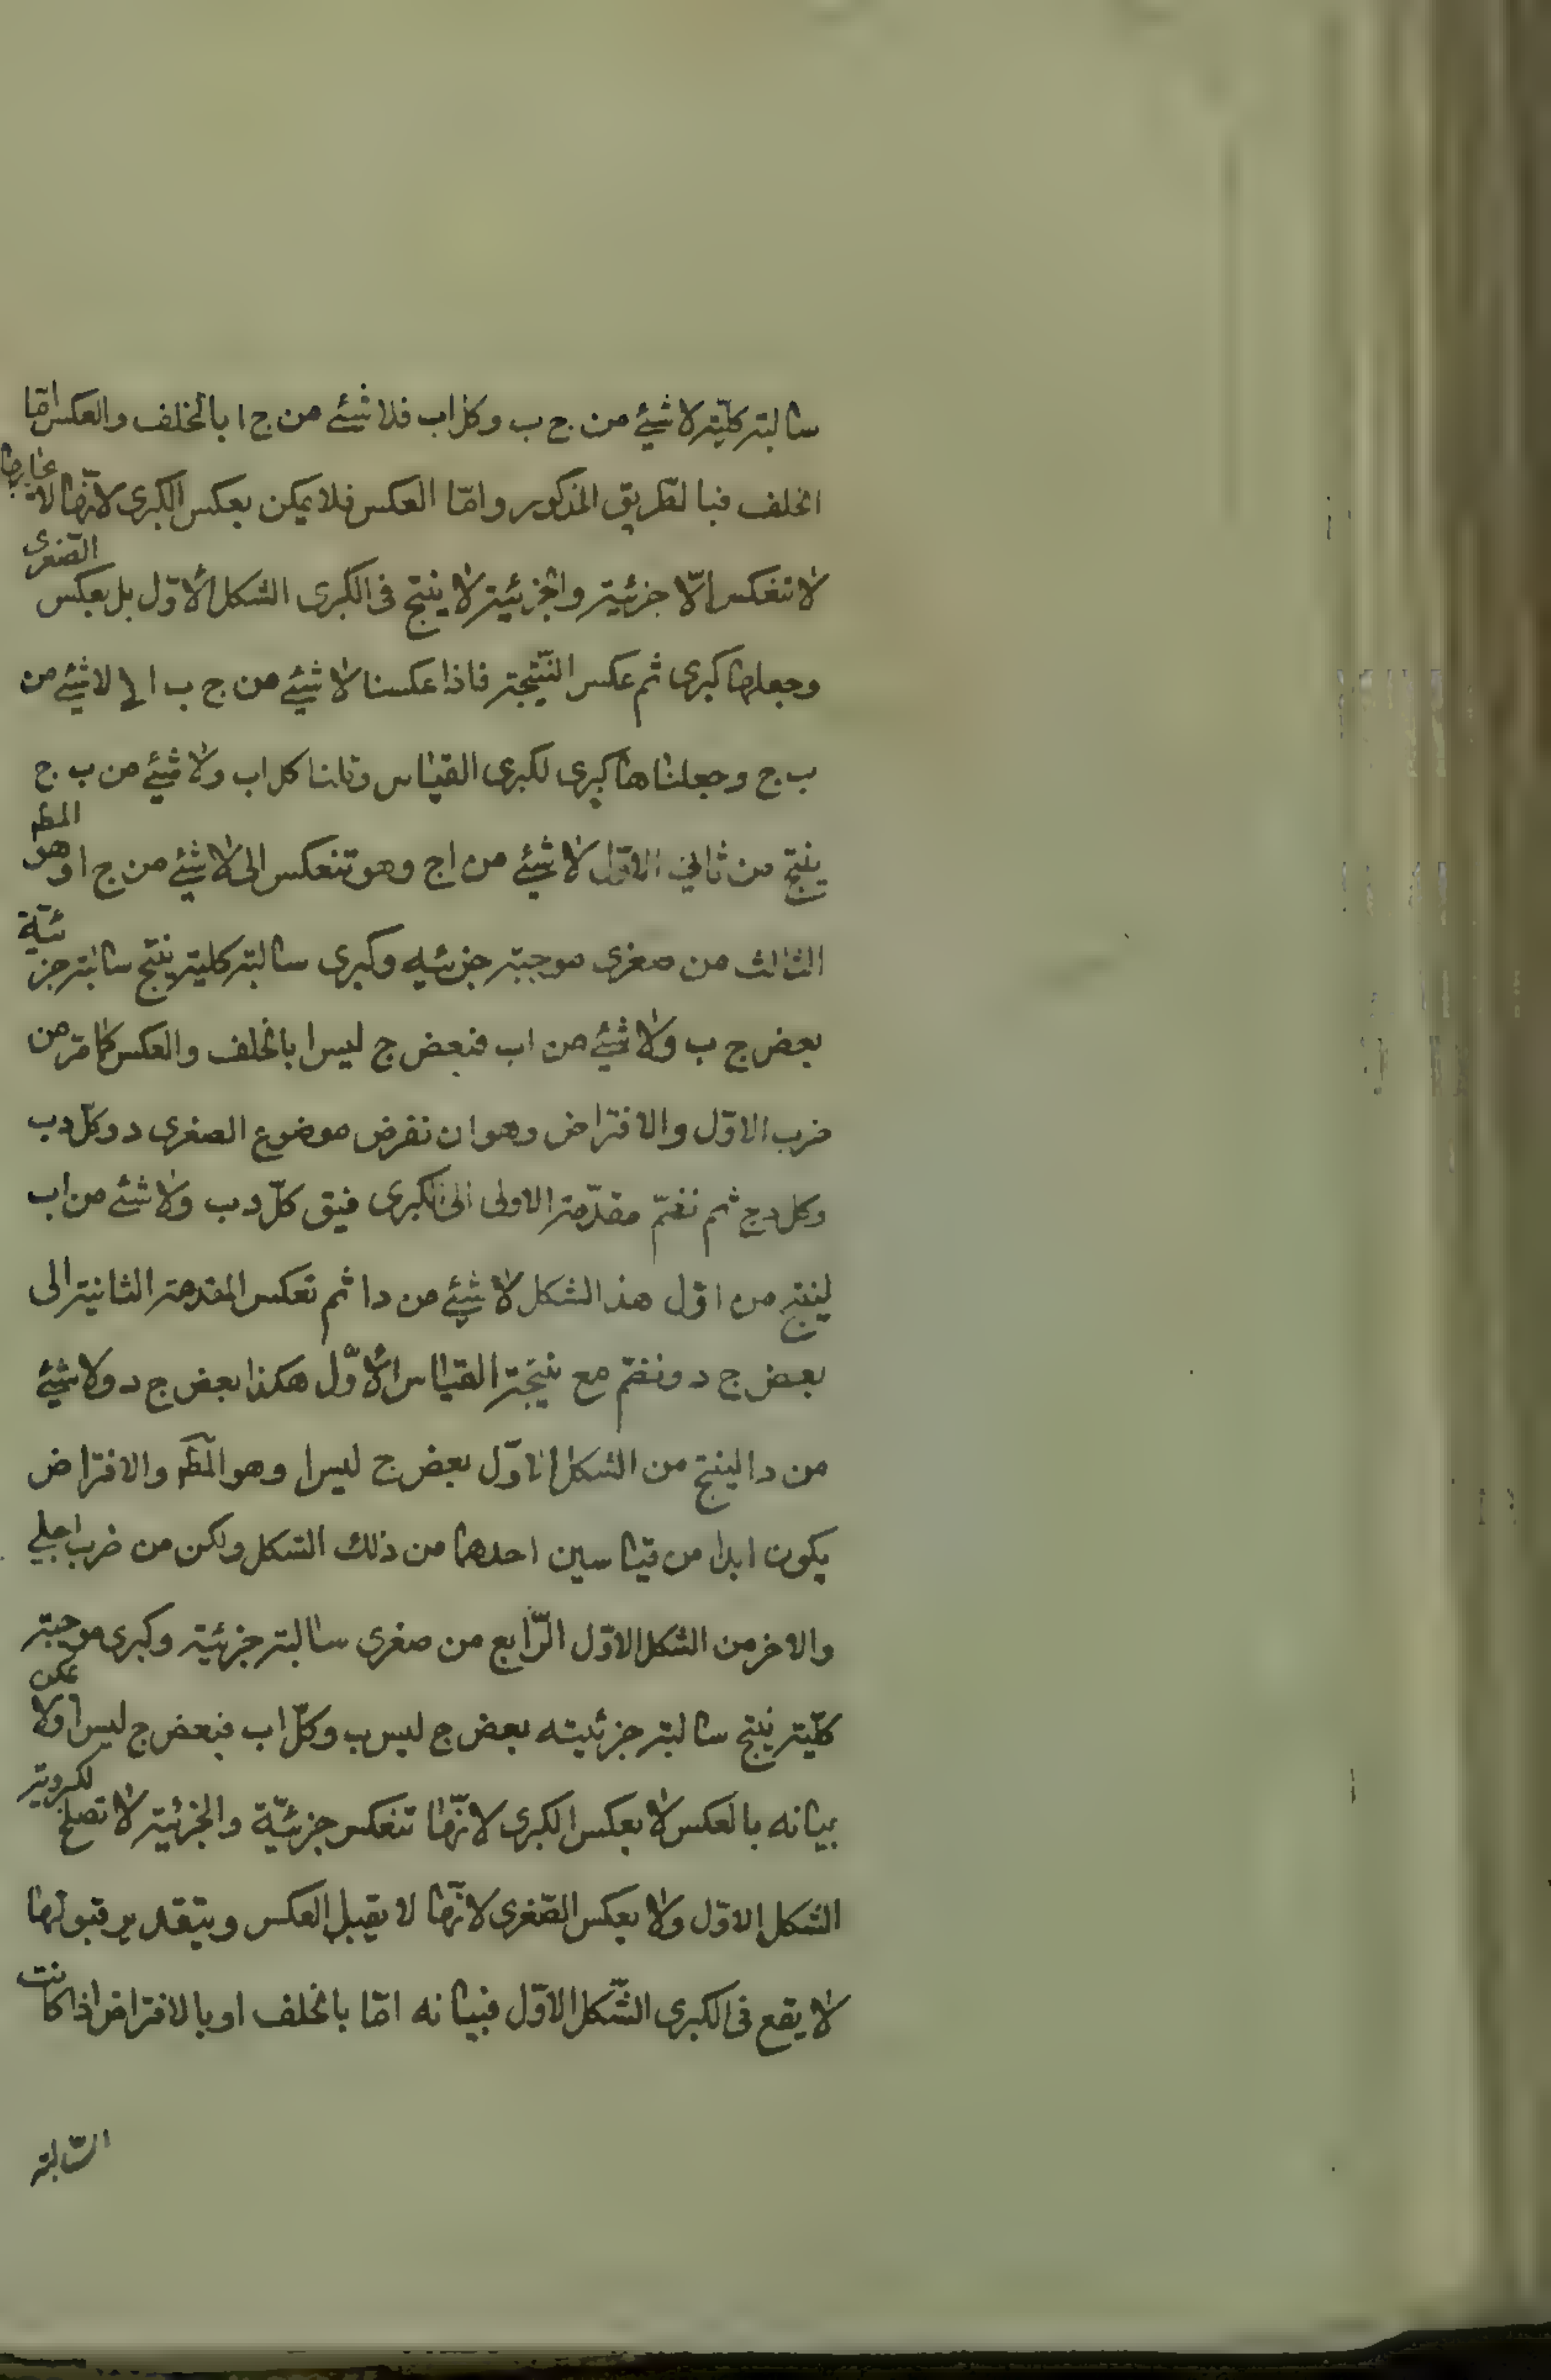 سالبة كليّة لا شيئ من ج ب وكل ا ب فلا شيئ من ج ا بالخلف والعكس امّا
الخلف فبالطريق المذكور وامّا العكس فلا يمكن بعكس الكبرى لانّها لا
لا تنعكس الّا جزئية والجزئية لا ينتج فى الكبرى الشكل الأوّل بل بعكس الصّغرى
وجعلها كبرى ثم عكس النّتيجة فاذا عكسنا لا شيئ من ج ب الى لا شيئ من
ب ج وجعلناها كبرى لكبرى القياس وقلنا كل ا ب ولا شيئ من ب ج
ينتج من ثانى الاوّل لا شيئ من ا ج وهو تنعكس الى لا شيئ من ج ا وهو المط
الثالث من صغرى موجبة جزئيه وكبرى سالبة كلية ينتج سالبة جزئيّة
بعض ج ب ولا شيئ من ا ب فبعض ج ليس ا بالخلف والعكس كما مرّ من
ضرب الاوّل والافتراض وهو ان نفرض موضوع الصغرى د وكلّ د ب
وكل د ج ثم نضمّ مقدّمة الاولى الى الكبرى فيق كلّ د ب ولا شئ من ا ب
لينتج من اوّل هذا الشكل لا شيئ من د ا ثم نعكس المقدمة الثانية الى
بعض ج د ونضمّ مع نتيجة القياس الأوّل هكذا بعض ج د ولا شيئ
من د ا لينتج من الشكل الاوّل بعض ج ليس ا وهو المط والافتراض
يكون ابدا من قياسين احدهما من ذلك الشكل ولكن من ضرب اجلي
والاخر من الشكل الاوّل الرّابع من صغرى سالبة جزئية وكبرى موجبة
كلّية ينتج سالبة جزئيته بعض ج ليس ب وكلّ ا ب فبعض ج ليس ا ولا يمكن
بيانه بالعكس لا بعكس الكبرى لانّها تنعكس جزئيّة والجزئية لا تصلح لكبروية
الشكل الاوّل ولا بعكس الصّغرى لانّها لا يقبل العكس وبتقدير قبولها
لا يقع فى الكبرى الشّكل الاوّل فبيانه امّا بالخلف او بالافتراض اذا كانت
السّالبة